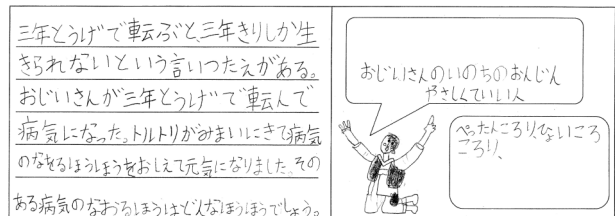 三年とうげで転ぶと、三年きりしか生
きられないという言いつたえがある。
おじいさんが三年とうげで転んで
病気になった。トルトリがみまいにきて病気
のなをるほうほうをおしえて元気になりました。その
ある病気のなおるほうほうはどんなほうほうでしょう。
おじいさんのいのちのおんじん
やさしくていい人
ぺったんころり、ないころ
ころり、